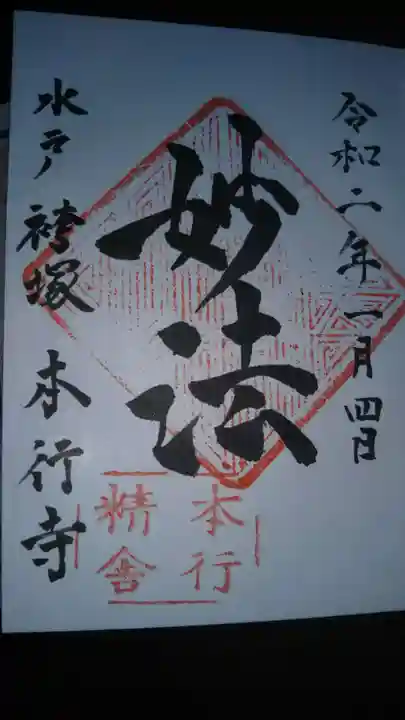 令和二年一月四日
妙法
本行
精舎
水戸 袴塚 本行寺